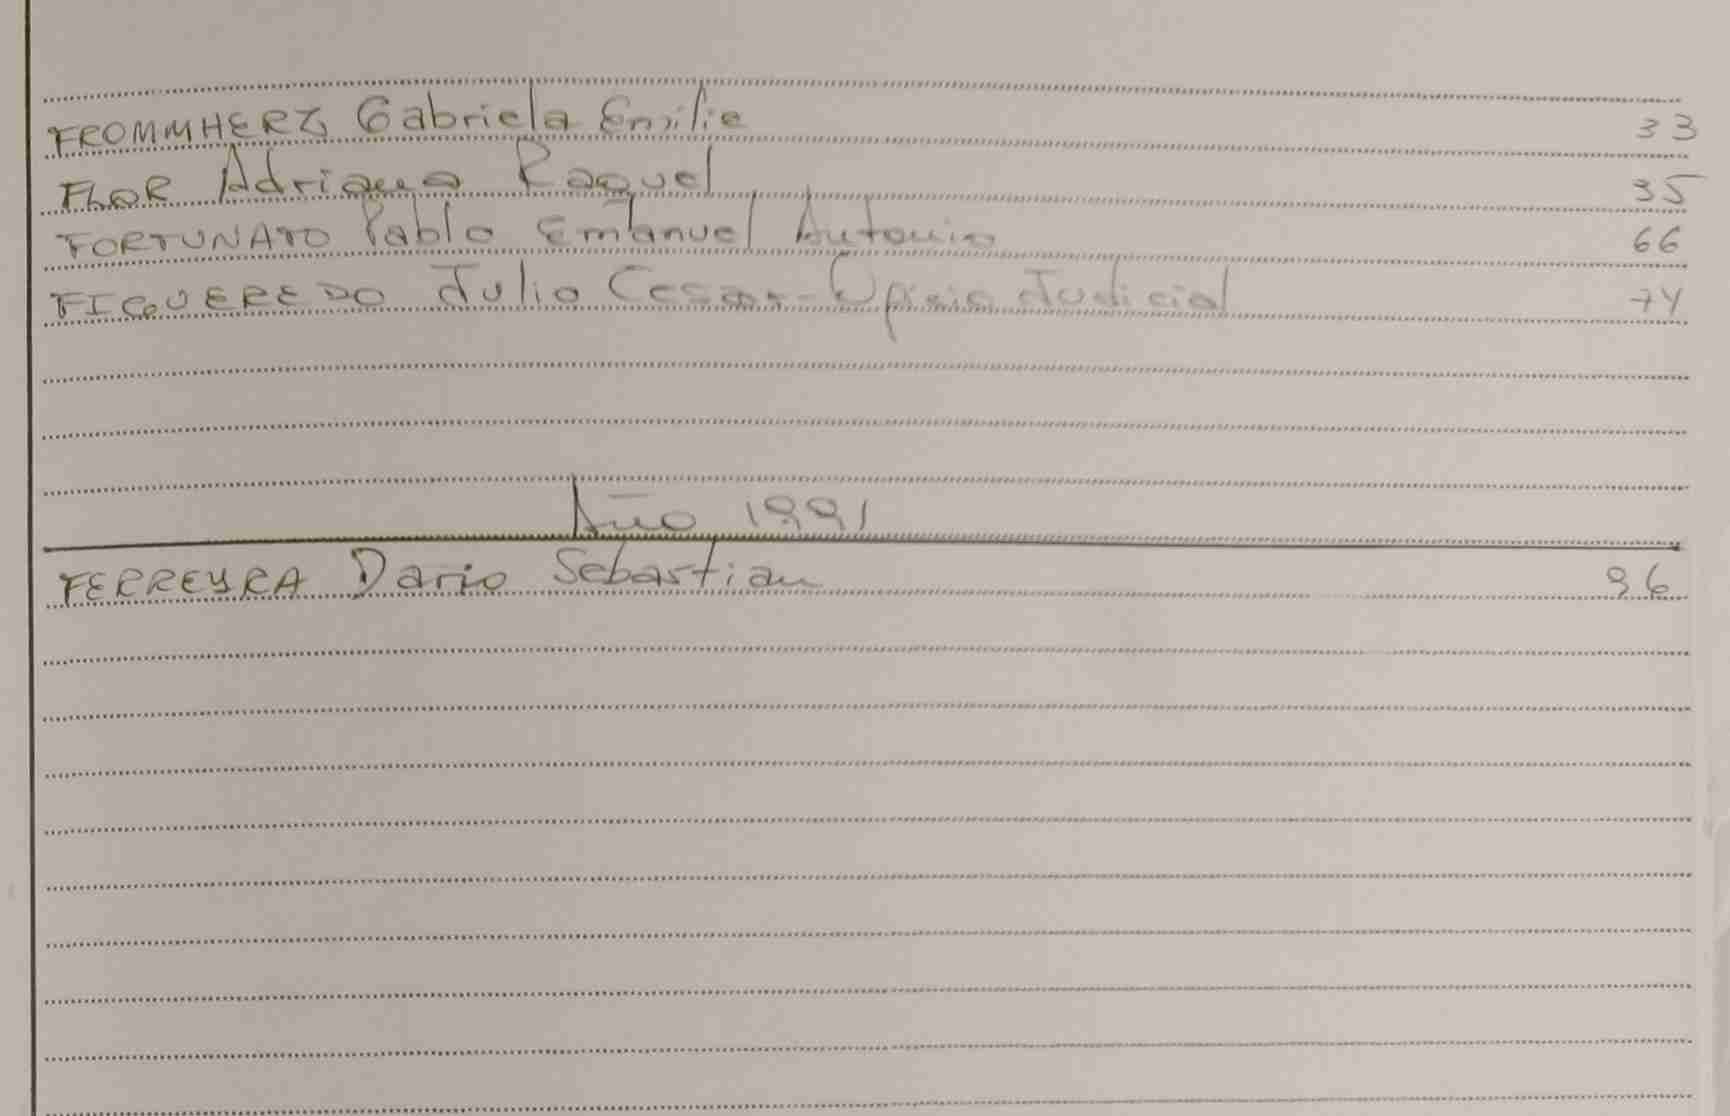 FROMMHERZ Gabriela Emilie 33
FLOR Adriana Raquel 35
FORTUNATO Pablo Emanuel Antonio 66
FIGUEREDO Julio Cesar - Oficio Judicial 74
Año 1991
FERREYRA Dario Sebastian 96